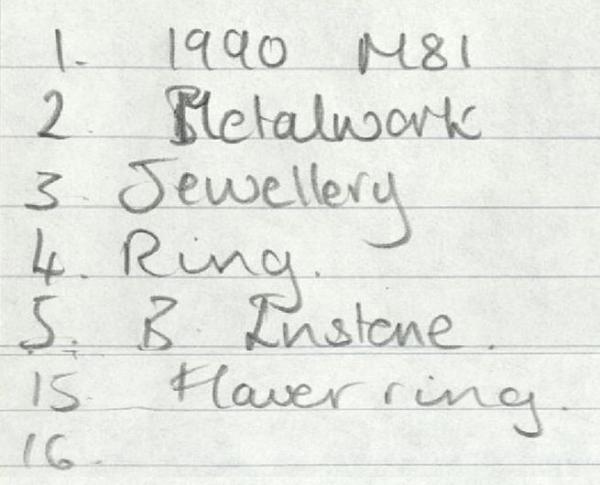 1. 1990 M81
2. Metalwork
3. Jewellery
4. Ring.
5. B Instone.
15 Flower ring.
16.